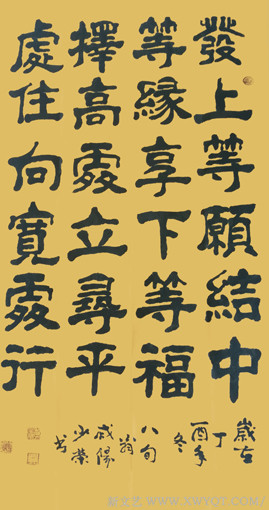 發上等願結中
等緣享下等福
擇高處立尋平
處住向寬處行
歲在
丁
酉年
冬
八旬
翁
咸陽
少榮
书